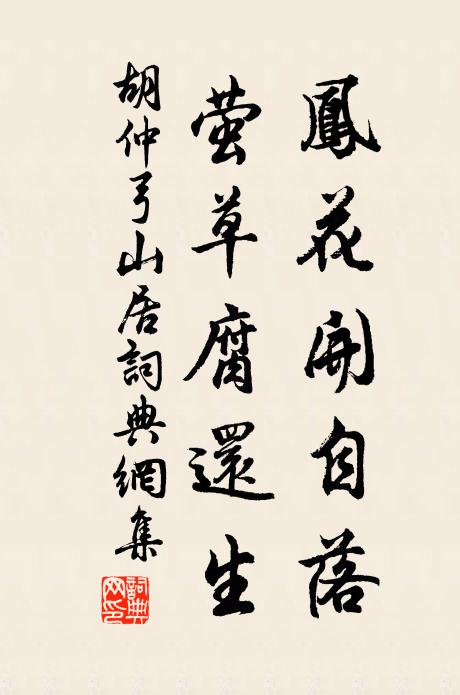 鳳花開自落
螢草腐還生
胡仲弓山居詞典網集
詞典网印